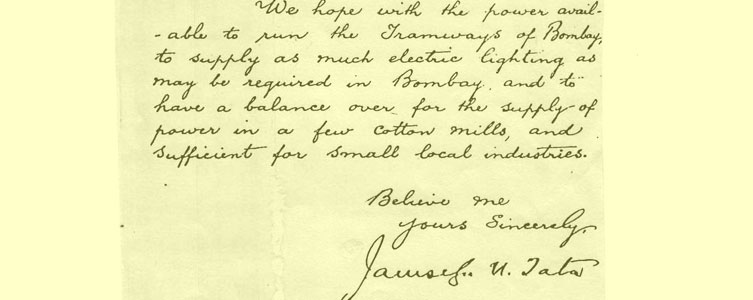 We hope with the power avail-
-able to run the Tramways of Bombay,
to supply as much electric lighting as
may be required in Bombay, and to
have a balance over for the supply of
power in a few cotton mills, and
sufficient for small local industries.
Believe me
Yours Sincerely,
Jamsetji N. Tata